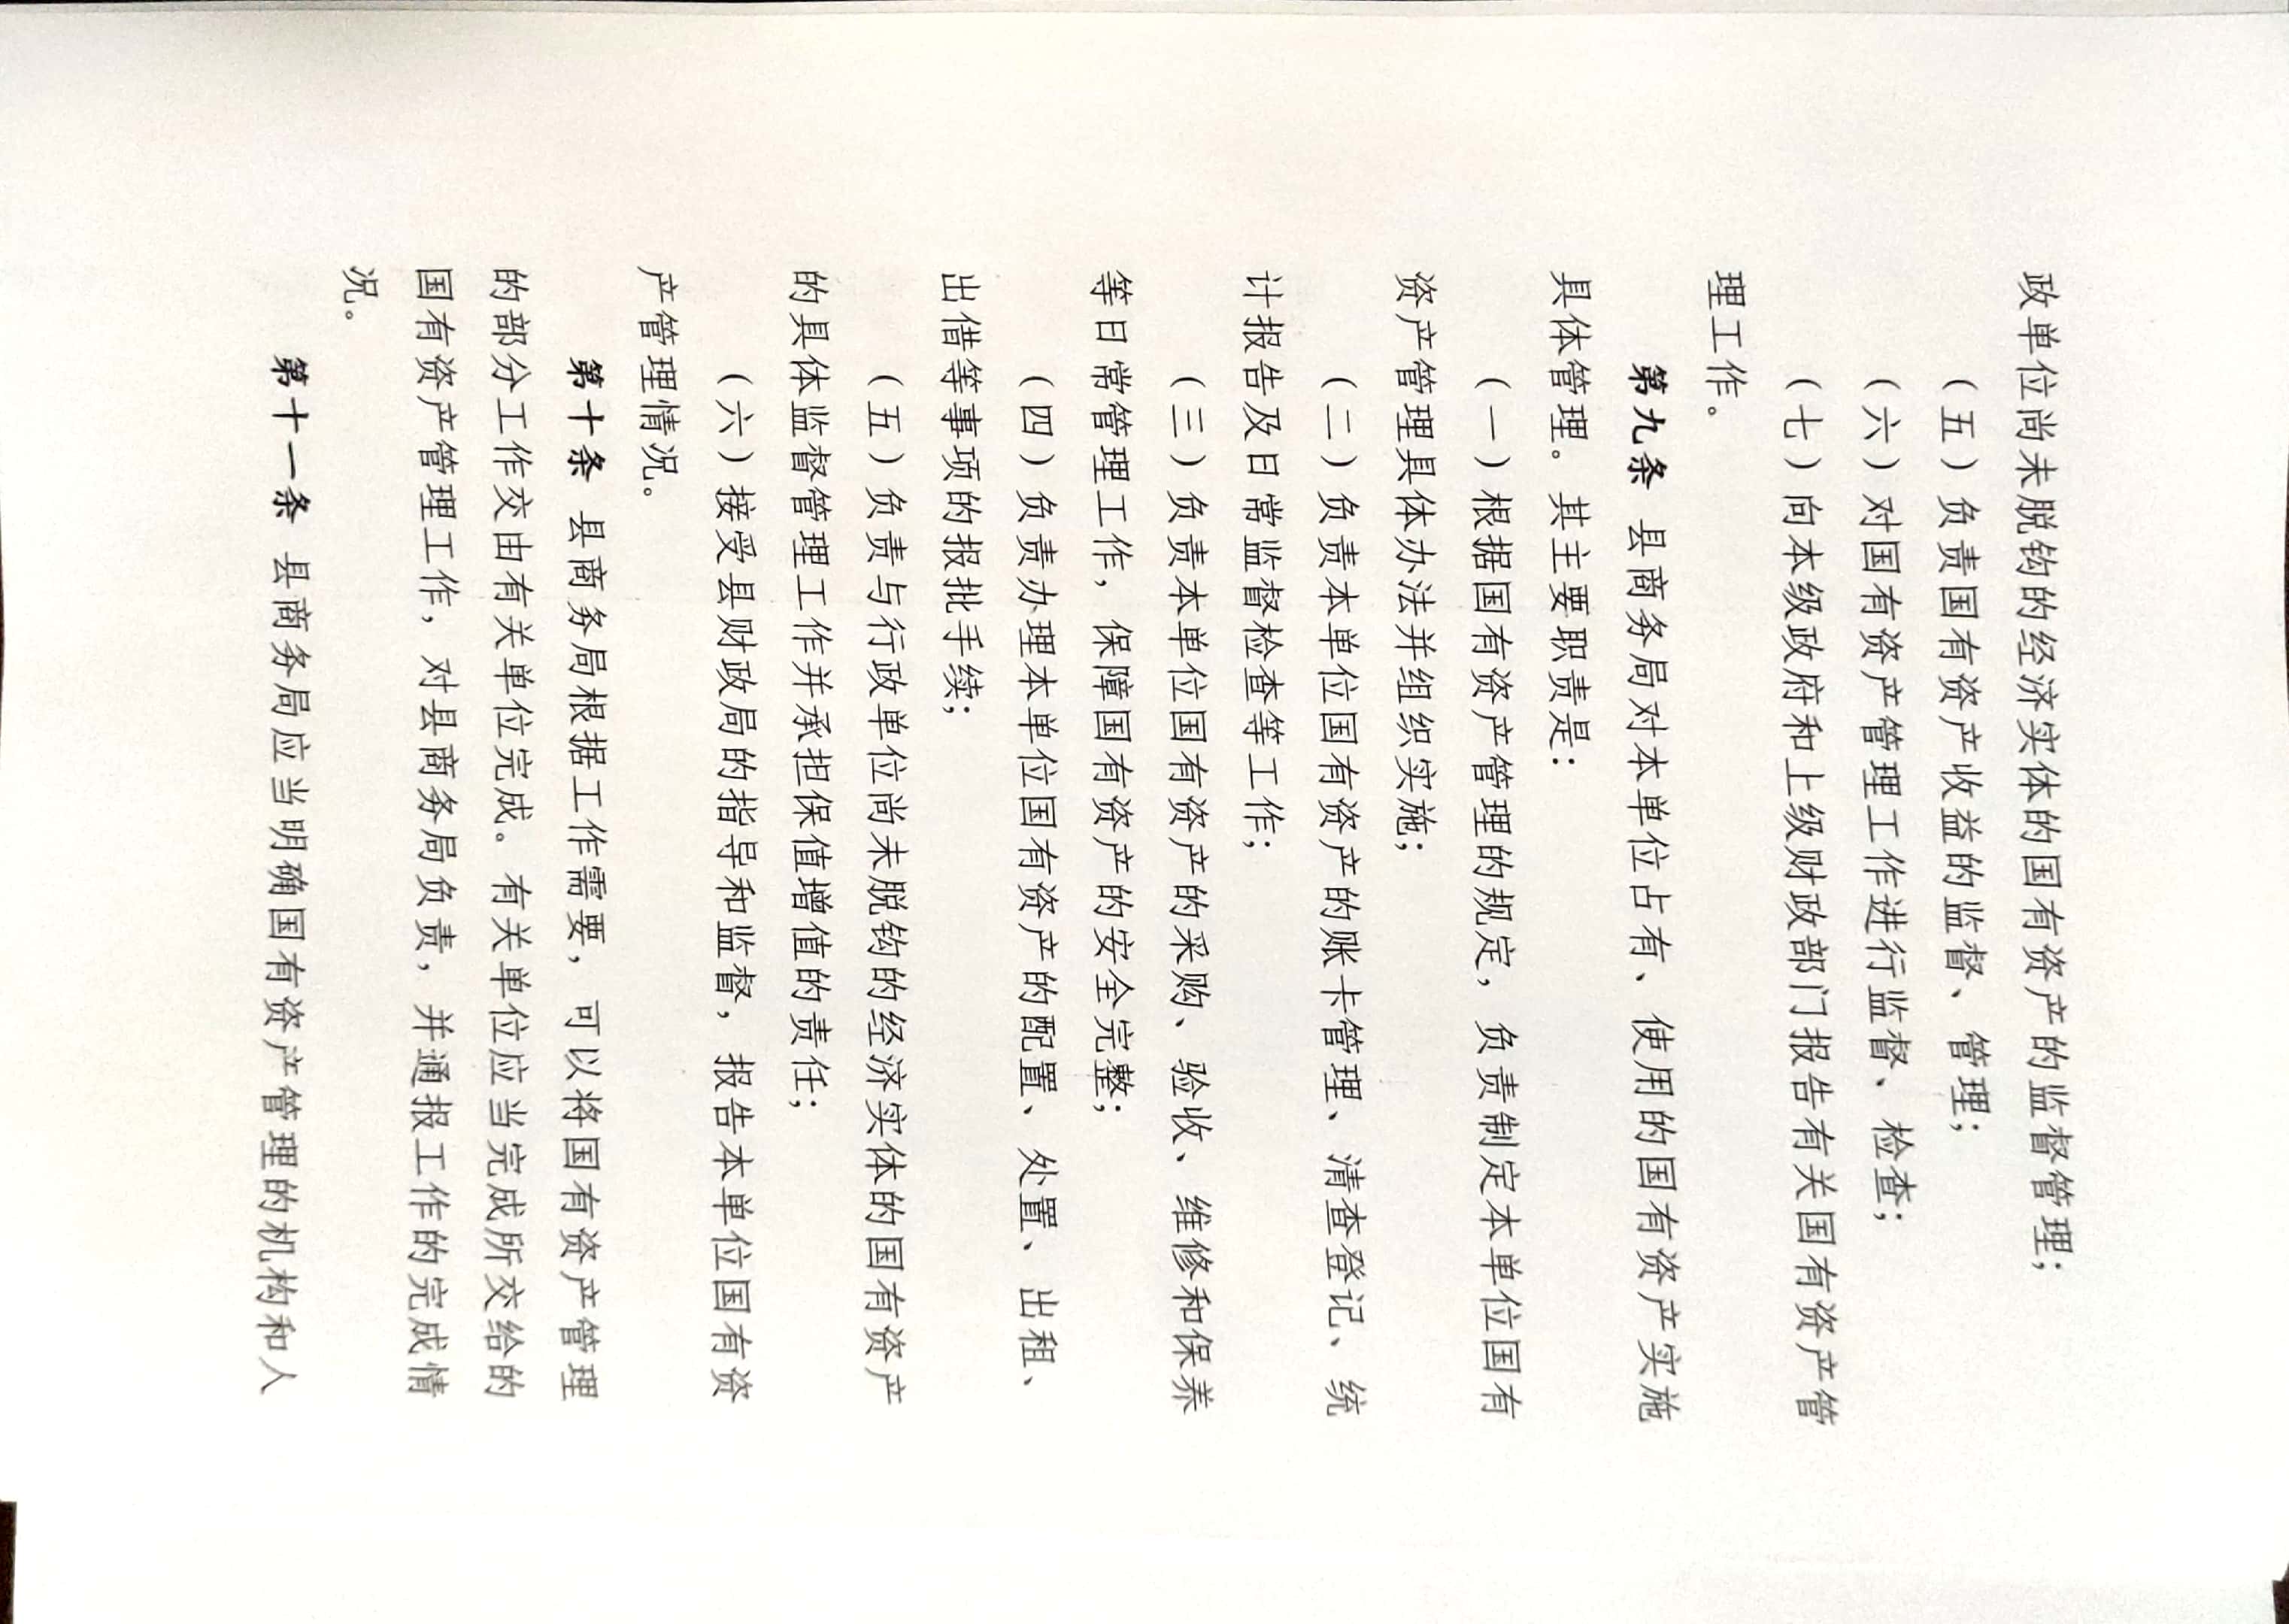 政单位尚未脱钩的经济实体的国有资产的监督管理；
（五）负责国有资产收益的监督、管理；
（六）对国有资产管理工作进行监督、检查；
（七）向本级政府和上级财政部门报告有关国有资产管
理工作。
第九条 县商务局对本单位占有、使用的国有资产实施
具体管理。其主要职责是：
（一）根据国有资产管理的规定，负责制定本单位国有
资产管理具体办法并组织实施；
（二）负责本单位国有资产的账卡管理、清查登记、统
计报告及日常监督检查等工作；
（三）负责本单位国有资产的采购、验收、维修和保养
等日常管理工作，保障国有资产的安全完整；
（四）负责办理本单位国有资产的配置、处置、出租、
出借等事项的报批手续；
（五）负责与行政单位尚未脱钩的经济实体的国有资产
的具体监督管理工作并承担保值增值的责任；
（六）接受县财政局的指导和监督，报告本单位国有资
产管理情况。
第十条 县商务局根据工作需要，可以将国有资产管理
的部分工作交由有关单位完成。有关单位应当完成所交给的
国有资产管理工作，对县商务局负责，并通报工作的完成情
况。
第十一条 县商务局应当明确国有资产管理的机构和人